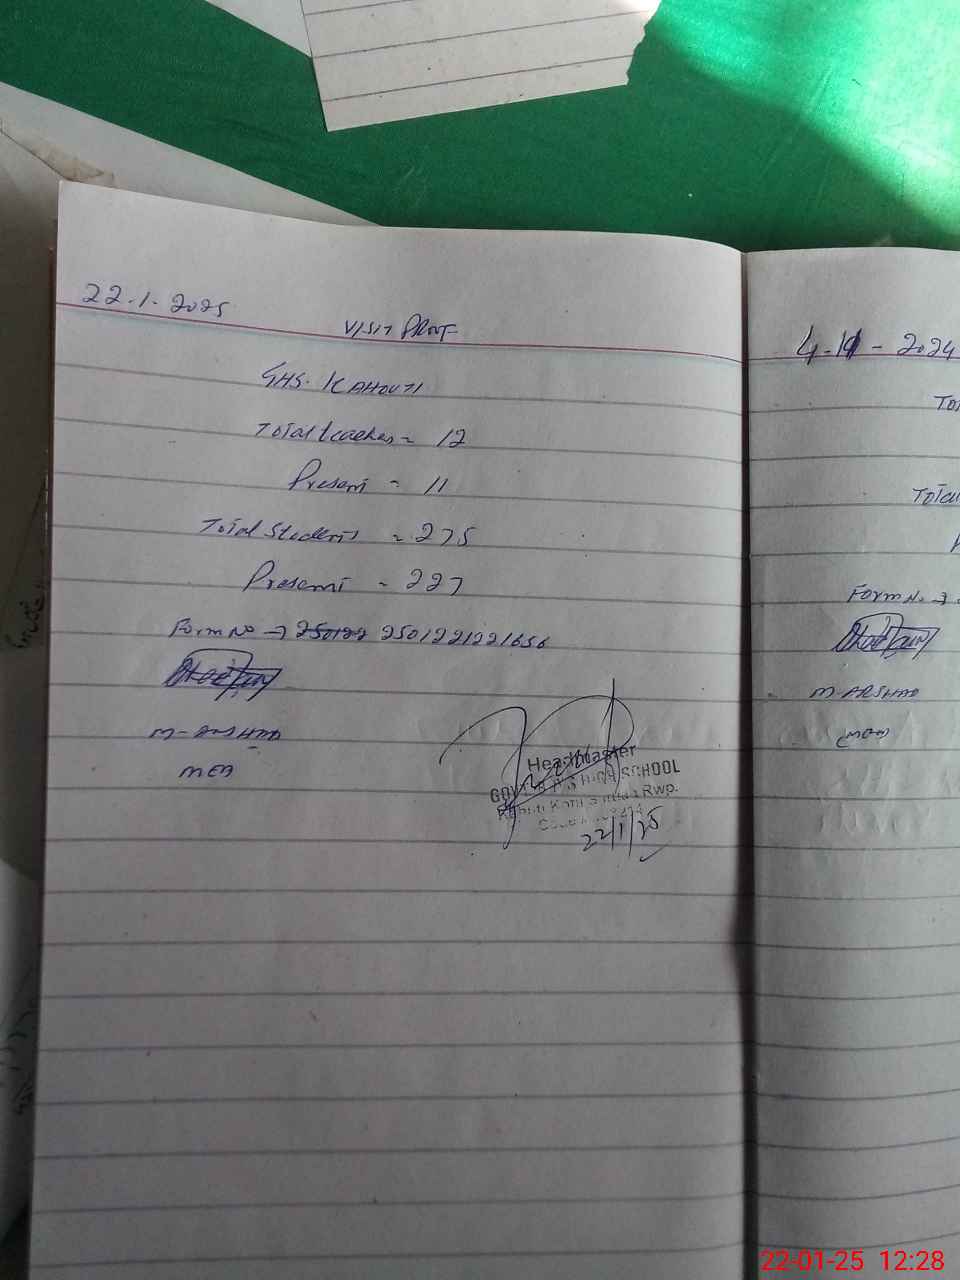 22.1.2025
VISIT PROOF
GHS. KAHOUTI
Total teaches = 12
Present = 11
Total Students = 275
Present = 227
Form No → 250122 2501221221656
M-ARSHAD
MEA
Headmaster
GOVT. HIGH SCHOOL
Rwp.
22/1/25
4-11-2024
Total
Form No →
M-ARSHAD
MEA
22-01-25 12:28